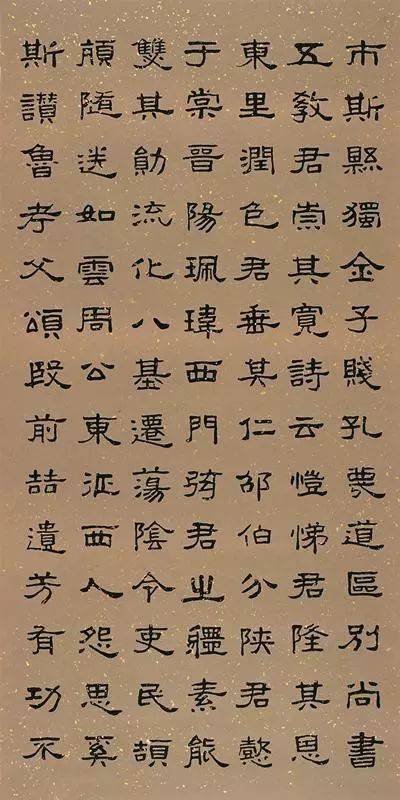 市斯縣獨金子賤孔蔑道區別尚書
五教君崇其寬詩云愷悌君隆其恩
東里潤色君垂其仁邵伯分陝君懿
于棠晉陽珮瑋西門弦君之疆素能
雙其勛流化八基遷蕩陰令吏民頡
頏隨送如雲周公東征西人怨思奚
斯讚魯考父頌殷前喆遺芳有功不